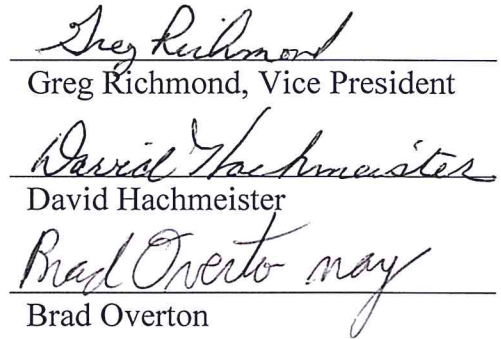 Greg Richmond
Greg Richmond, Vice President
David Hachmeister
David Hachmeister
Brad Overto nay
Brad Overton